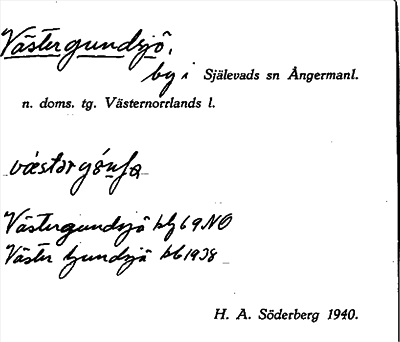 Västergundsjö,
by i Själevads sn Ångermanl.
n. doms. tg. Västernorrlands l.
Västergundsjö kbl 69NO
Väster Gundsjö kb 1938
H. A. Söderberg 1940.